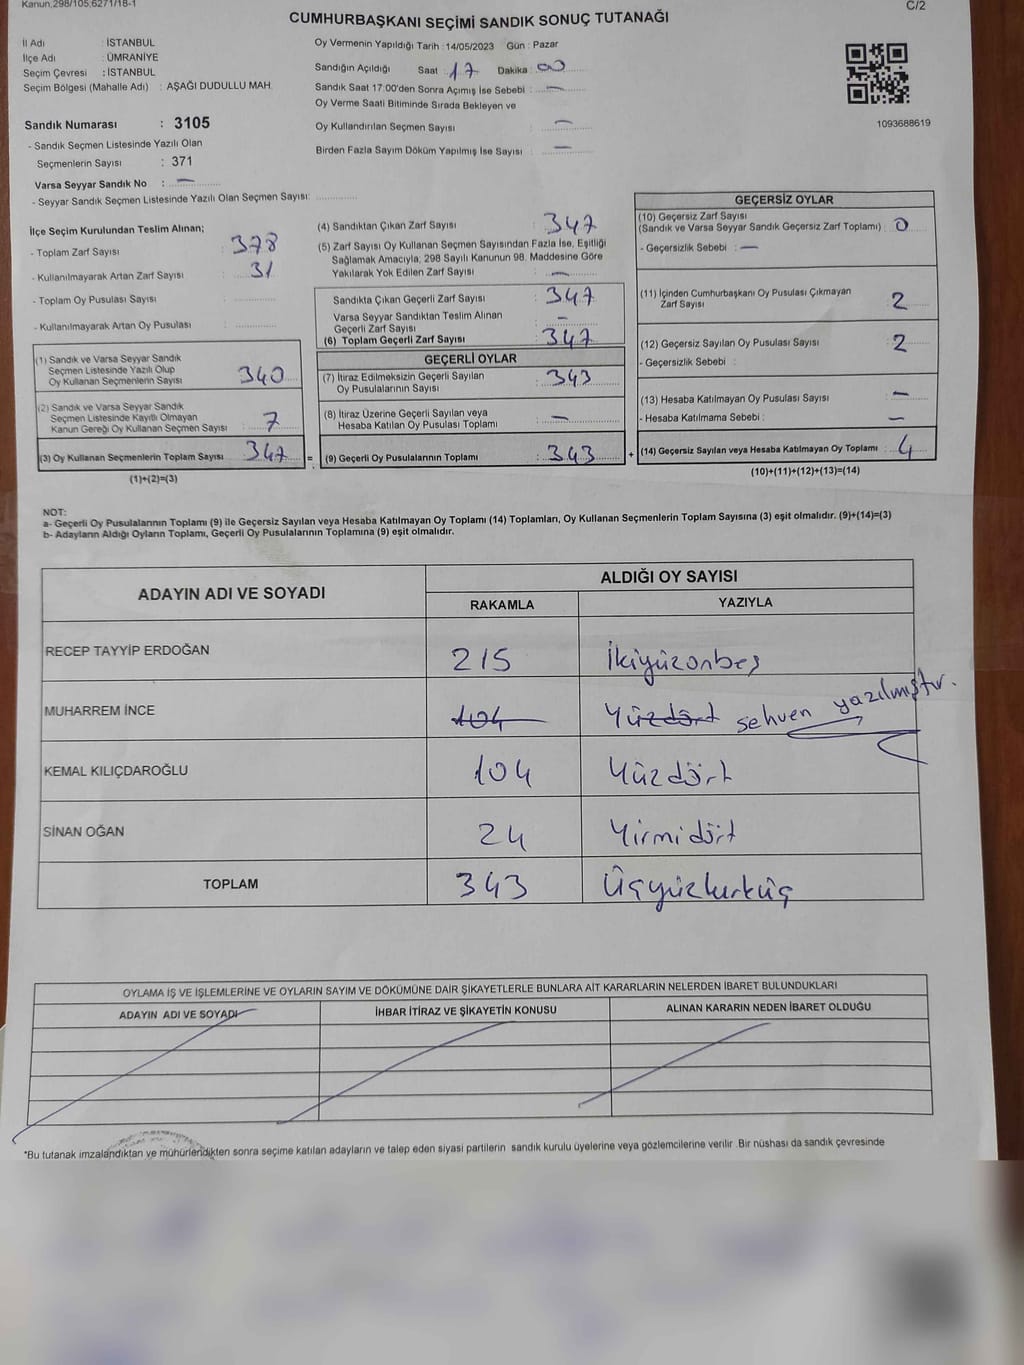 Kanun,298/105,6271/18-1
C/2
CUMHURBAŞKANI SEÇİMİ SANDIK SONUÇ TUTANAĞI
İl Adı : İSTANBUL
İlçe Adı : ÜMRANİYE
Seçim Çevresi : İSTANBUL
Seçim Bölgesi (Mahalle Adı) : AŞAĞI DUDULLU MAH.
Sandık Numarası : 3105
- Sandık Seçmen Listesinde Yazılı Olan
Seçmenlerin Sayısı : 371
Varsa Seyyar Sandık No : —
- Seyyar Sandık Seçmen Listesinde Yazılı Olan Seçmen Sayısı:
Oy Vermenin Yapıldığı Tarih : 14/05/2023 Gün : Pazar
Sandığın Açıldığı Saat : 17 Dakika : 00
Sandık Saat 17:00'den Sonra Açımış İse Sebebi : —
Oy Verme Saati Bitiminde Sırada Bekleyen ve
Oy Kullandırılan Seçmen Sayısı : —
Birden Fazla Sayım Döküm Yapılmış İse Sayısı : —
1093688619
İlçe Seçim Kurulundan Teslim Alınan;
- Toplam Zarf Sayısı : 378
- Kullanılmayarak Artan Zarf Sayısı : 31
- Toplam Oy Pusulası Sayısı :
- Kullanılmayarak Artan Oy Pusulası :
(1) Sandık ve Varsa Seyyar Sandık
Seçmen Listesinde Yazılı Olup
Oy Kullanan Seçmenlerin Sayısı : 340
(2) Sandık ve Varsa Seyyar Sandık
Seçmen Listesinde Kayıtlı Olmayan
Kanun Gereği Oy Kullanan Seçmen Sayısı : 7
(3) Oy Kullanan Seçmenlerin Toplam Sayısı : 347 =
(1)+(2)=(3)
(4) Sandıktan Çıkan Zarf Sayısı : 347
(5) Zarf Sayısı Oy Kullanan Seçmen Sayısından Fazla İse, Eşitliği
Sağlamak Amacıyla, 298 Sayılı Kanunun 98. Maddesine Göre
Yakılarak Yok Edilen Zarf Sayısı : —
Sandıkta Çıkan Geçerli Zarf Sayısı : 347
Varsa Seyyar Sandıktan Teslim Alınan
Geçerli Zarf Sayısı : —
(6) Toplam Geçerli Zarf Sayısı : 347
GEÇERLİ OYLAR
(7) İtiraz Edilmeksizin Geçerli Sayılan
Oy Pusulalarının Sayısı : 343
(8) İtiraz Üzerine Geçerli Sayılan veya
Hesaba Katılan Oy Pusulası Toplamı : —
(9) Geçerli Oy Pusulalarının Toplamı : 343 +
GEÇERSİZ OYLAR
(10) Geçersiz Zarf Sayısı
(Sandık ve Varsa Seyyar Sandık Geçersiz Zarf Toplamı) : 0
- Geçersizlik Sebebi : —
(11) İçinden Cumhurbaşkanı Oy Pusulası Çıkmayan
Zarf Sayısı : 2
(12) Geçersiz Sayılan Oy Pusulası Sayısı : 2
- Geçersizlik Sebebi :
(13) Hesaba Katılmayan Oy Pusulası Sayısı : —
- Hesaba Katılmama Sebebi : —
(14) Geçersiz Sayılan veya Hesaba Katılmayan Oy Toplamı : 4
(10)+(11)+(12)+(13)=(14)
NOT:
a- Geçerli Oy Pusulalarının Toplamı (9) ile Geçersiz Sayılan veya Hesaba Katılmayan Oy Toplamı (14) Toplamları, Oy Kullanan Seçmenlerin Toplam Sayısına (3) eşit olmalıdır. (9)+(14)=(3)
b- Adayların Aldığı Oyların Toplamı, Geçerli Oy Pusulalarının Toplamına (9) eşit olmalıdır.
ADAYIN ADI VE SOYADI ALDIĞI OY SAYISI
RAKAMLA YAZIYLA
RECEP TAYYİP ERDOĞAN 215 İkiyüzonbeş
MUHARREM İNCE 104 Yüzdört sehven yazılmıştır.
KEMAL KILIÇDAROĞLU 104 Yüzdört
SİNAN OĞAN 24 Yirmidört
TOPLAM 343 Üçyüzkırküç
OYLAMA İŞ VE İŞLEMLERİNE VE OYLARIN SAYIM VE DÖKÜMÜNE DAİR ŞİKAYETLERLE BUNLARA AİT KARARLARIN NELERDEN İBARET BULUNDUKLARI
ADAYIN ADI VE SOYADI İHBAR İTİRAZ VE ŞİKAYETİN KONUSU ALINAN KARARIN NEDEN İBARET OLDUĞU
*Bu tutanak imzalandıktan ve mühürlendikten sonra seçime katılan adayların ve talep eden siyasi partilerin sandık kurulu üyelerine veya gözlemcilerine verilir .Bir nüshası da sandık çevresinde